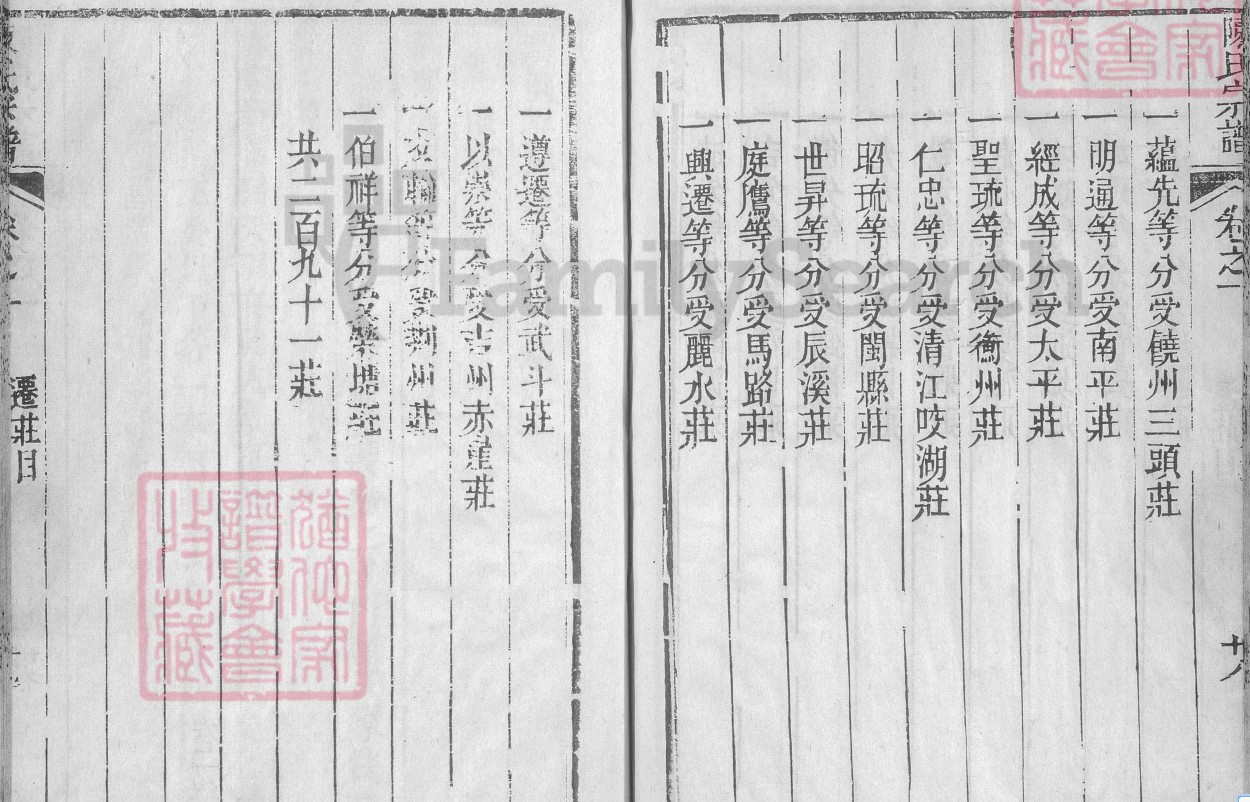 陳氏宗譜
卷之一
廿八
一蘊先等分受饒州三頭莊
一明通等分受南平莊
一經成等分受太平莊
一聖琉等分受衡州莊
一仁忠等分受清江咬湖莊
一昭琉等分受閩縣莊
一世昇等分受辰溪莊
一庭鷹等分受馬路莊
一興遷等分受麗水莊
一遵遷等分受武斗莊
一以崇等分受吉州赤崖莊
一等分受荆州莊
一伯祥等分受藥塘莊
共二百九十一莊
遷莊目
譜學會
藏
FamilySearch